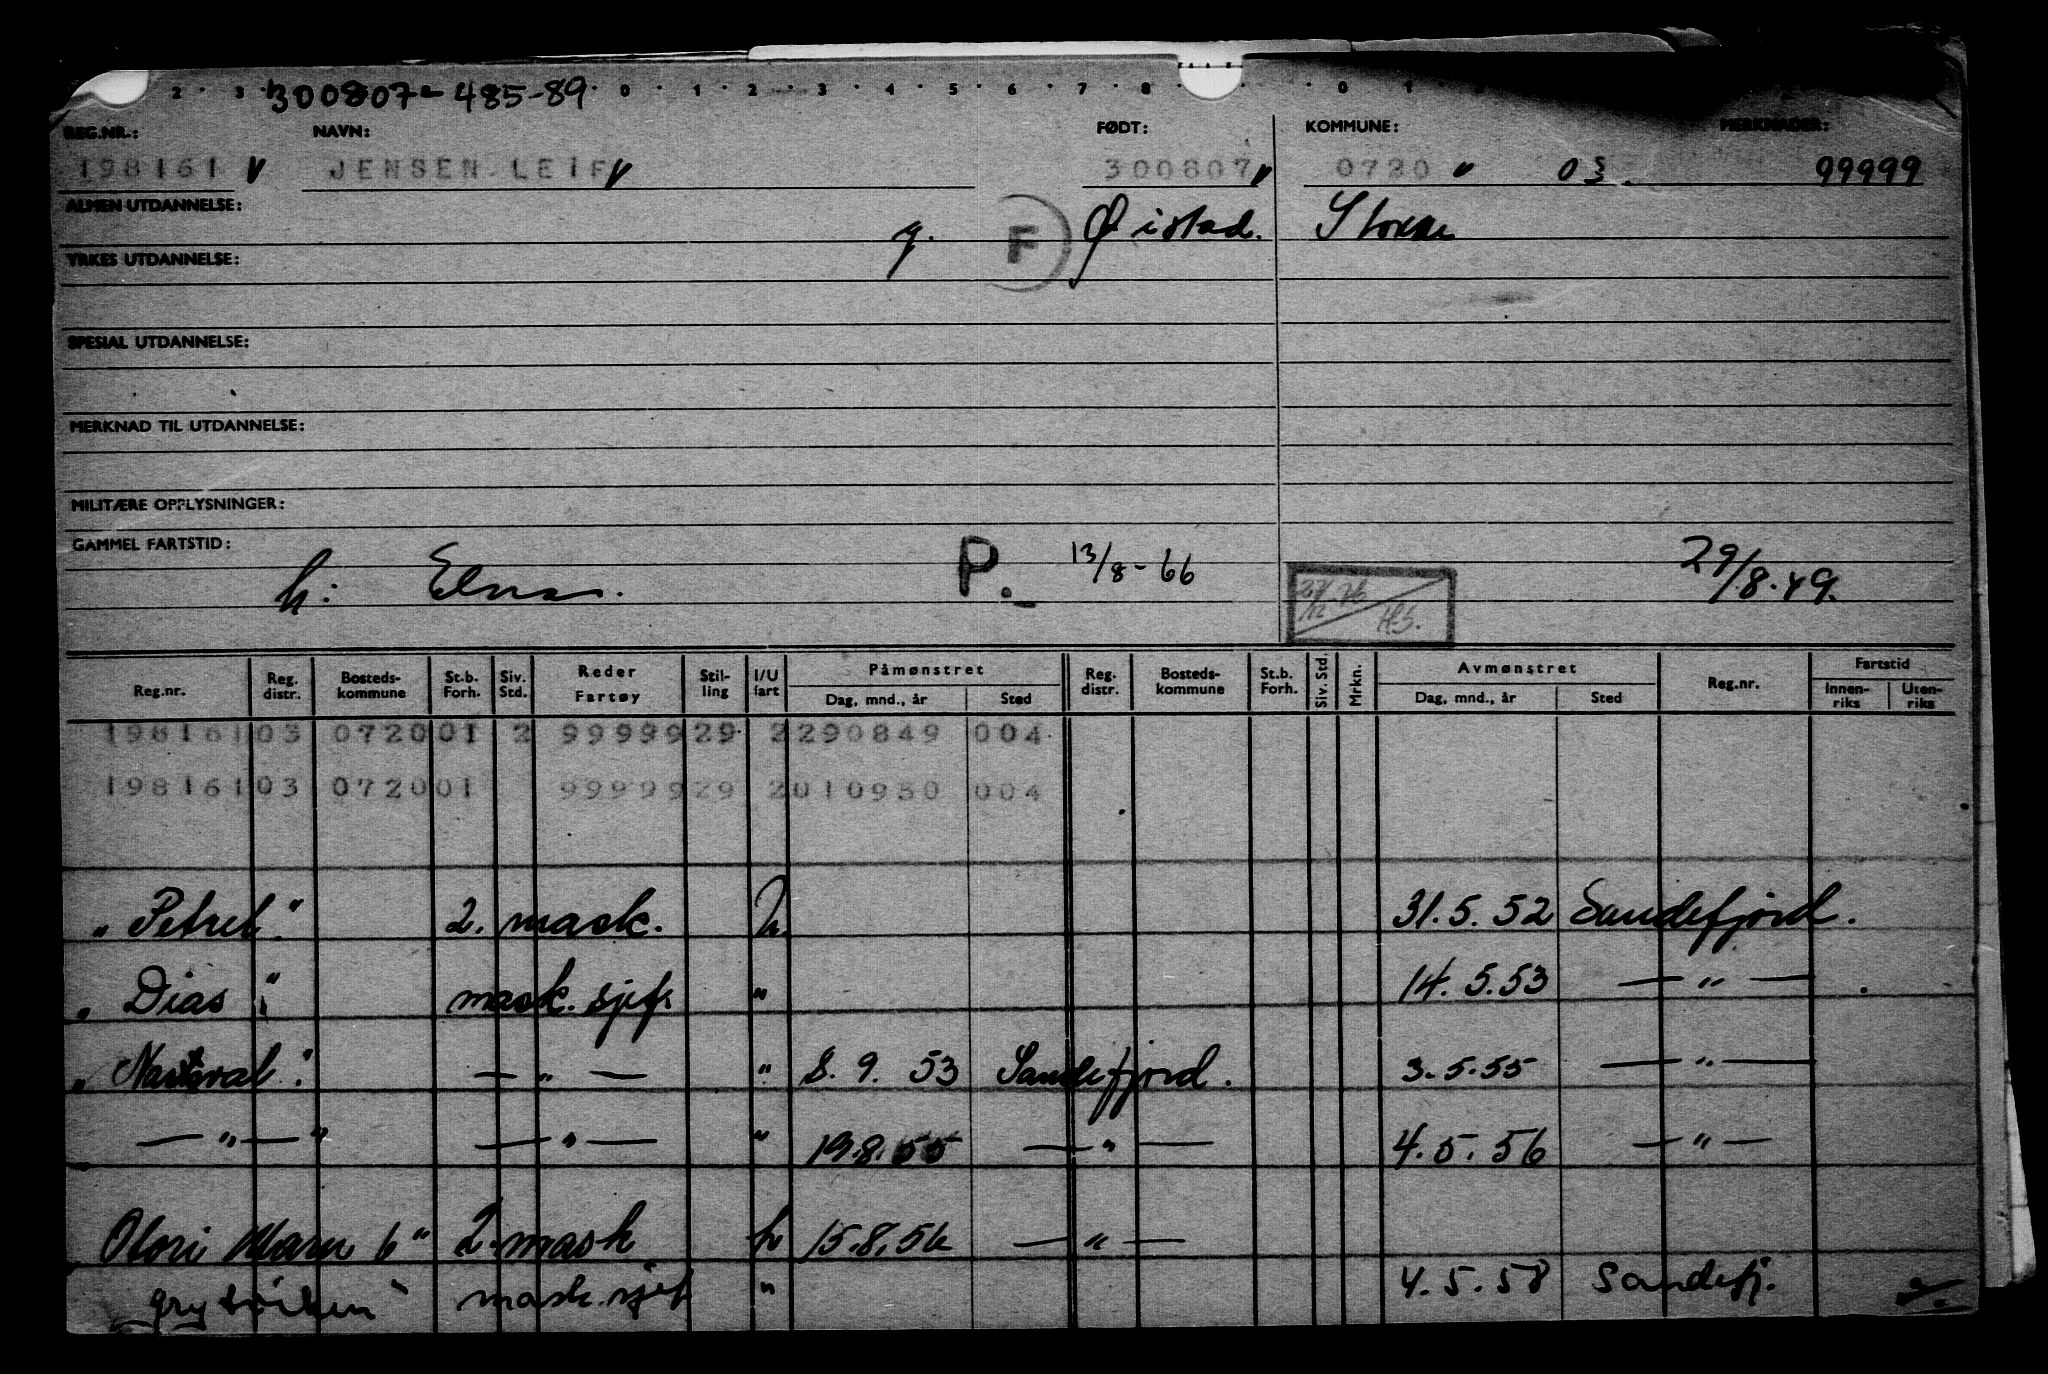 300807-485-89
REG.NR.: NAVN: FØDT: KOMMUNE: MERKNADER:
198161 JENSEN LEIF 300807 0720 03. 99999
ALMEN UTDANNELSE: g. F Øistad. Stokke
YRKES UTDANNELSE:
SPESIAL UTDANNELSE:
MERKNAD TIL UTDANNELSE:
MILITÆRE OPPLYSNINGER:
GAMMEL FARTSTID:
h: Elna. P. 13/8-66 29/8.49.
H.S.
Reg.nr. Reg. distr. Bosteds-kommune St.b. Forh. Siv. Std. Reder Fartøy Stil-ling I/U fart Påmønstret Dag, mnd., år Sted Reg. distr. Bosteds-kommune St.b. Forh. Siv. Std. Mrkn. Avmønstret Dag, mnd., år Sted Reg.nr. Fartstid Innen-riks Uten-riks
198161 03 0720 01 2 99999 29 2 290849 004
198161 03 0720 01 99999 29 2 010950 004
"Petrel" 2. mask. h. 31.5.52 Sandefjord.
"Dias" mask. sjef. " 14.5.53 — " —
"Nar​val" — " — " 8.9.53 Sandefjord. 3.5.55 — " —
— " — " — " — " 19.8.55 — " — 4.5.56 — " —
6" 2. mask h 15.8.56 — " —
grytviken" mask. sjef " 4.5.58 Sandefj.